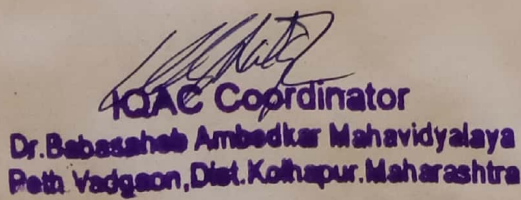 IQAC Coordinator
Dr.Babasaheb Ambedkar Mahavidyalaya
Peth Vadgaon,Dist.Kolhapur.Maharashtra